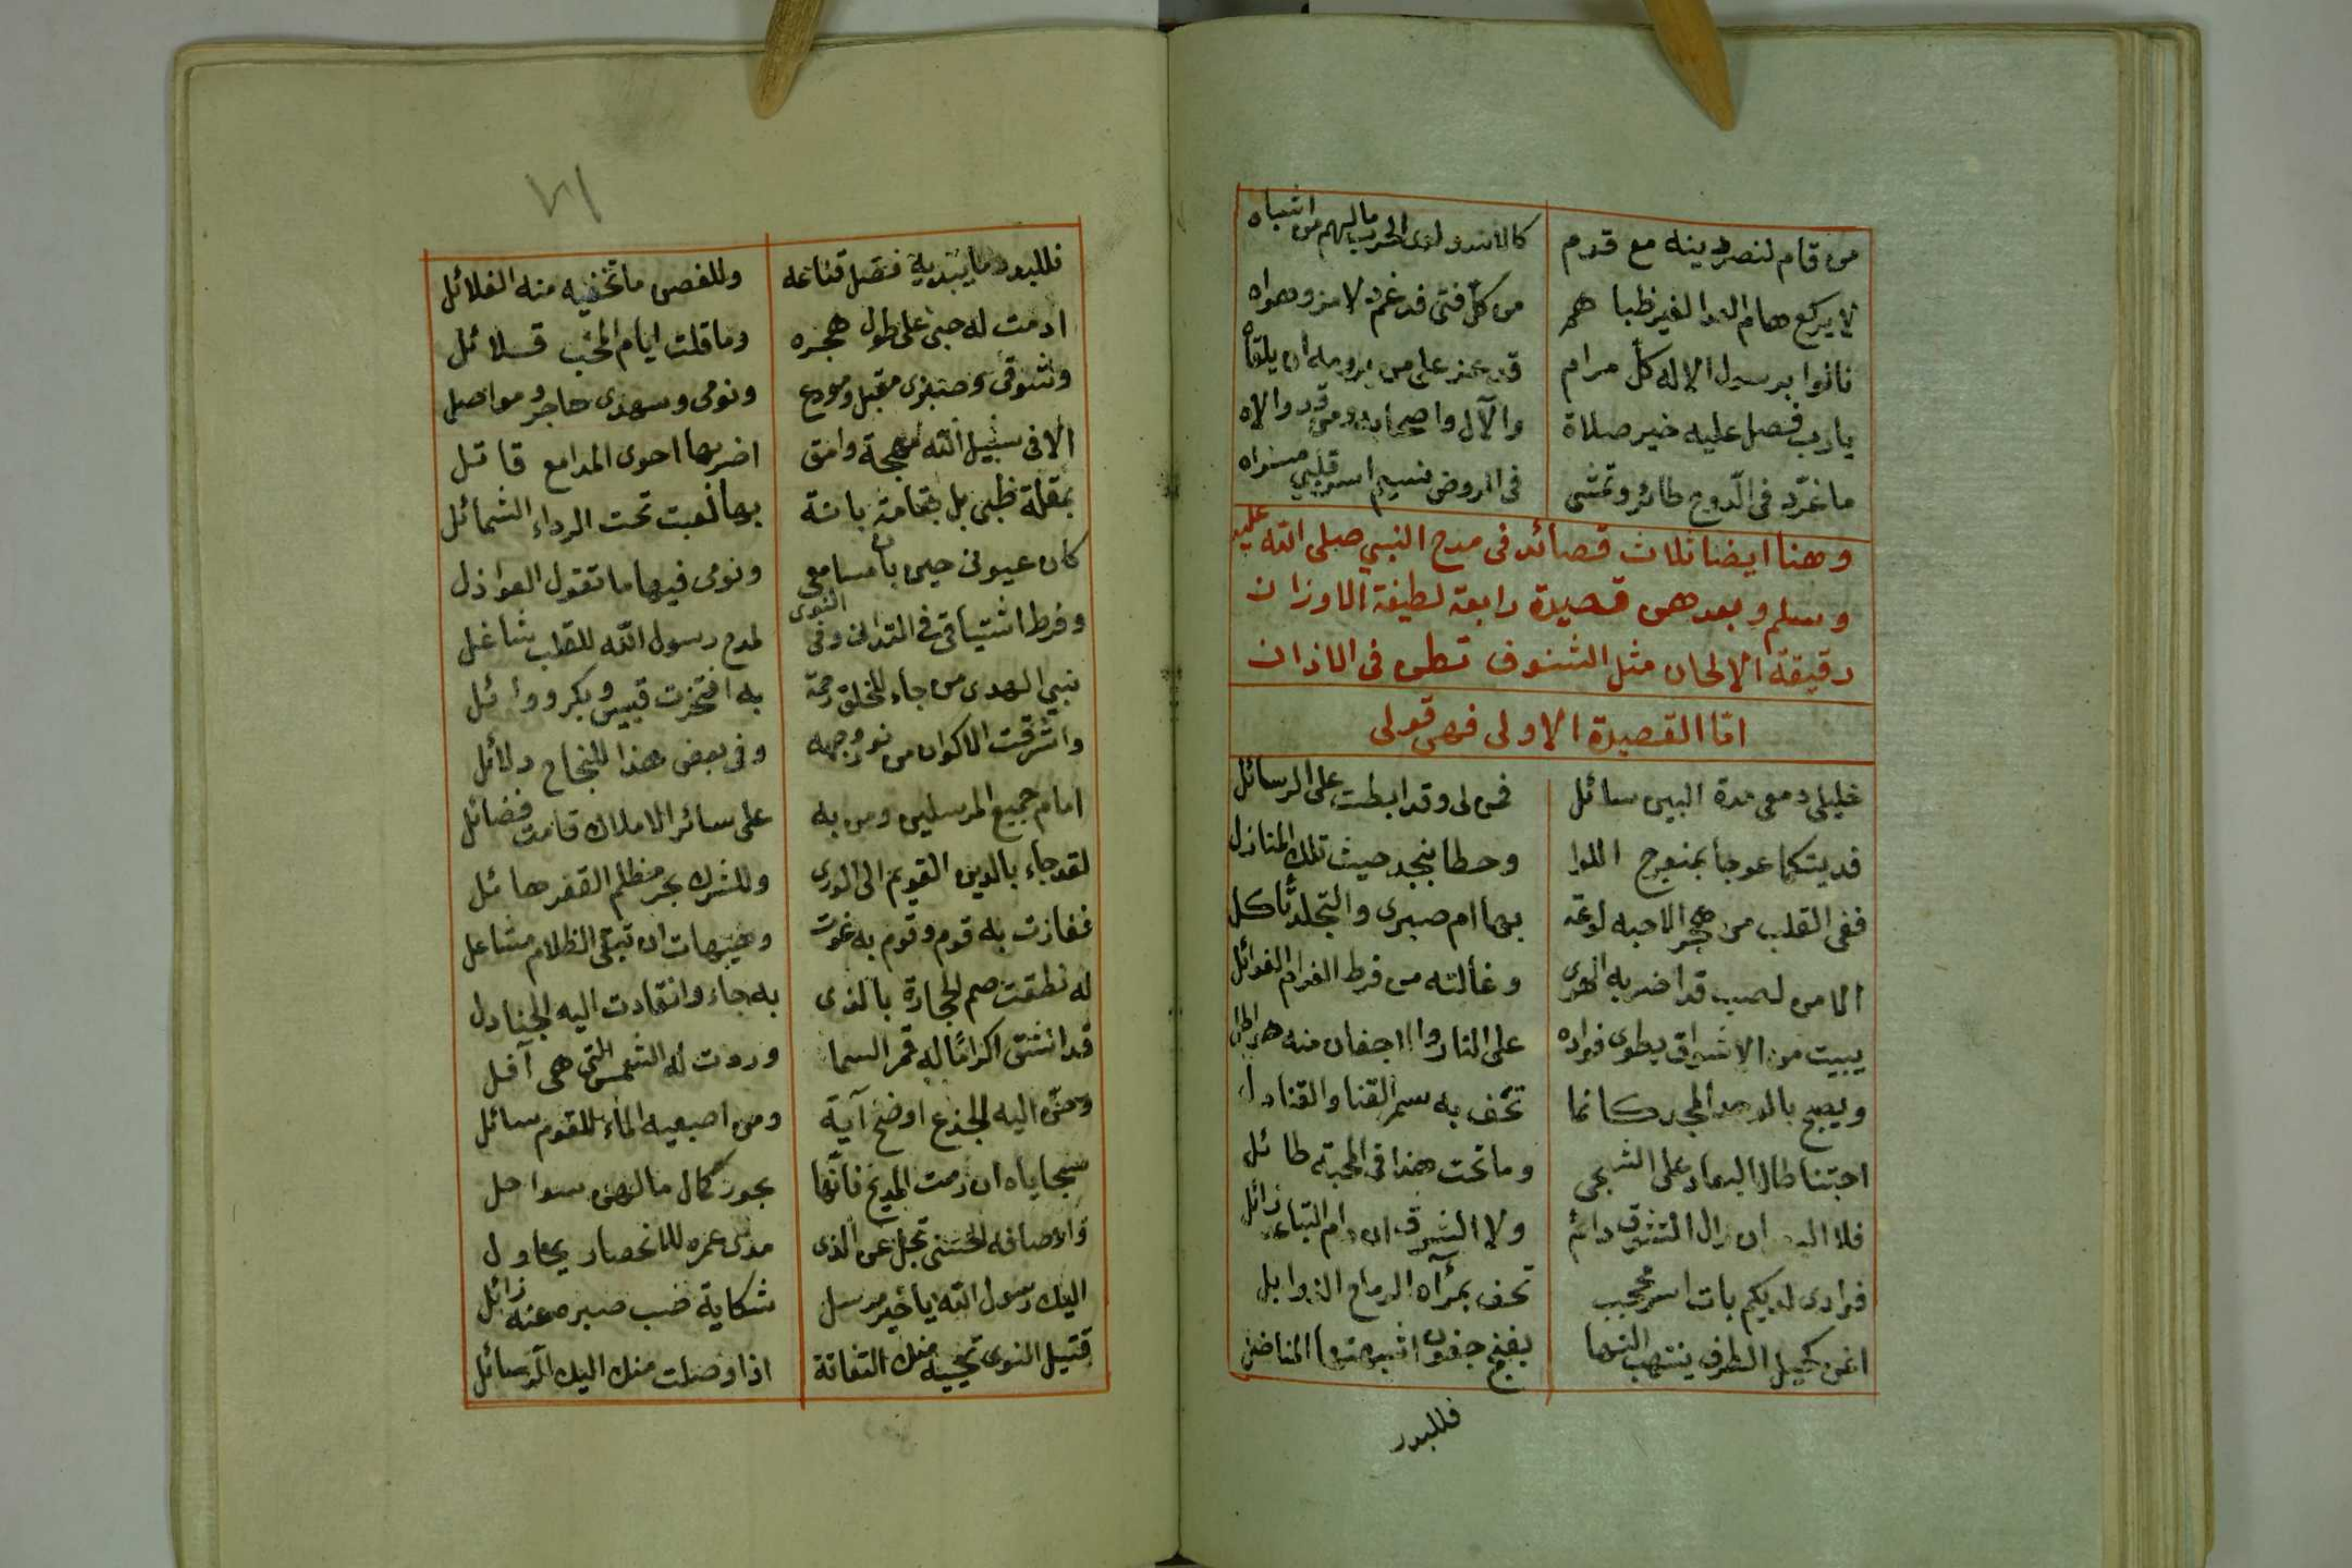 من قام لنصر دينه مع قدم كالاسد ولدى الحرب مالهم من اشباه
لا يركع هام العدا لغير ظبا هم من كل فتى قد غرم لامز وهواه
نانوا برسول الاله كل مرام قد عز على من يرومه ان يلقاه
يارب فصل عليه خير صلاة والآل واصحابه ومن قد والاه
ما غرّد في الدّوح طائر وتمشى في الروض نسيم اسر قلبي مسراه
وهنا ايضا ثلاث قصائد في مدح النبي صلى الله عليه
وسلم وبعدهن قصيدة رابعة لطيفة الاوزان
رقيقة الالحان مثل الشنوف تطن في الاذان
امّا القصيدة الاولى فهي قولي
خليلي دمعي مدة البين سائل فمن لي وقد ابطت على الرسائل
فديتكما عوجا بمنعرج اللوا وحطا بنجد حيث تلك المنازل
ففي القلب من هجر الاحبه لوعة بها ام صبري والتجلد ثاكل
الا من لصب قد اضر به الهوى وغالته من فرط الغرام الغوائل
يبيت من الاشواق يطوى فواده على النار والاجفان منه هواطل
ويصبح بالوجد المجد كانما تحف به سمر القنا والقنابل
احبتنا طال البعاد على الشجي وما تحت هذا في المحبة طائل
فلا البعد ان زال التشوق دائم ولا الشوق ان دام التباعد زائل
فوادى لديكم بات اسر محجب تحف بمرآه الرماح الذوابل
اغن كحيل الطرف ينتهب النها بغنج جفون اشبهتها المناضل
فللبدر
٧١
فللبدر ما يبديه فضل قناعه وللغصن ما تخفيه منه الغلائل
ادمت له حبى على طول هجره وما قلت ايام المحب قلائل
وشوقى وصبرى مقبل ومودع ونومى وسهدى هاجر ومواصل
الا في سبيل الله مهجة وامق اضر بها احوى المدامع قاتل
بمقلة ظبي بل بقامة بانة بها لعبت تحت الرداء الشمائل
كان عيوني حين بان مسامعي ونومى فيها ما تقول العواذل
وفرط اشتياقى في التداني وفي النوى لمدح رسول الله للقلب شاغل
نبي الهدى من جاء للخلق رحمة به افتخرت قيس وبكر ووائل
واشرقت الاكوان من نور وجهه وفي بعض هذا للنجاح دلائل
امام جميع المرسلين ومن به على سائر الاملاك قامت فضائل
لقد جاء بالدين القويم الى الورى وللشرك بحر مظلم القفر هائل
ففازت به قوم وقوم به غوت وهيهات ان تبقى الظلام مشاعل
له نطقت صم الحجارة بالذى به جاء وانقادت اليه الجنادل
قد انشق اكرامًا له قمر السما وردت له الشمس التى هي آفل
وحنّ اليه الجذع اوضح آية ومن اصبعيه الماء للقوم سائل
سجاياه ان رمت المديح فانّها بحور كمال مالهن سواحل
واوصافه الحسنى تجل عن الذى مدى عمره للانحصار يحاول
اليك رسول الله يا خير مرسل شكاية صب صبره عنه زائل
قتيل النوى تحييه منك التفاتة اذا وصلت منك اليك الرسائل